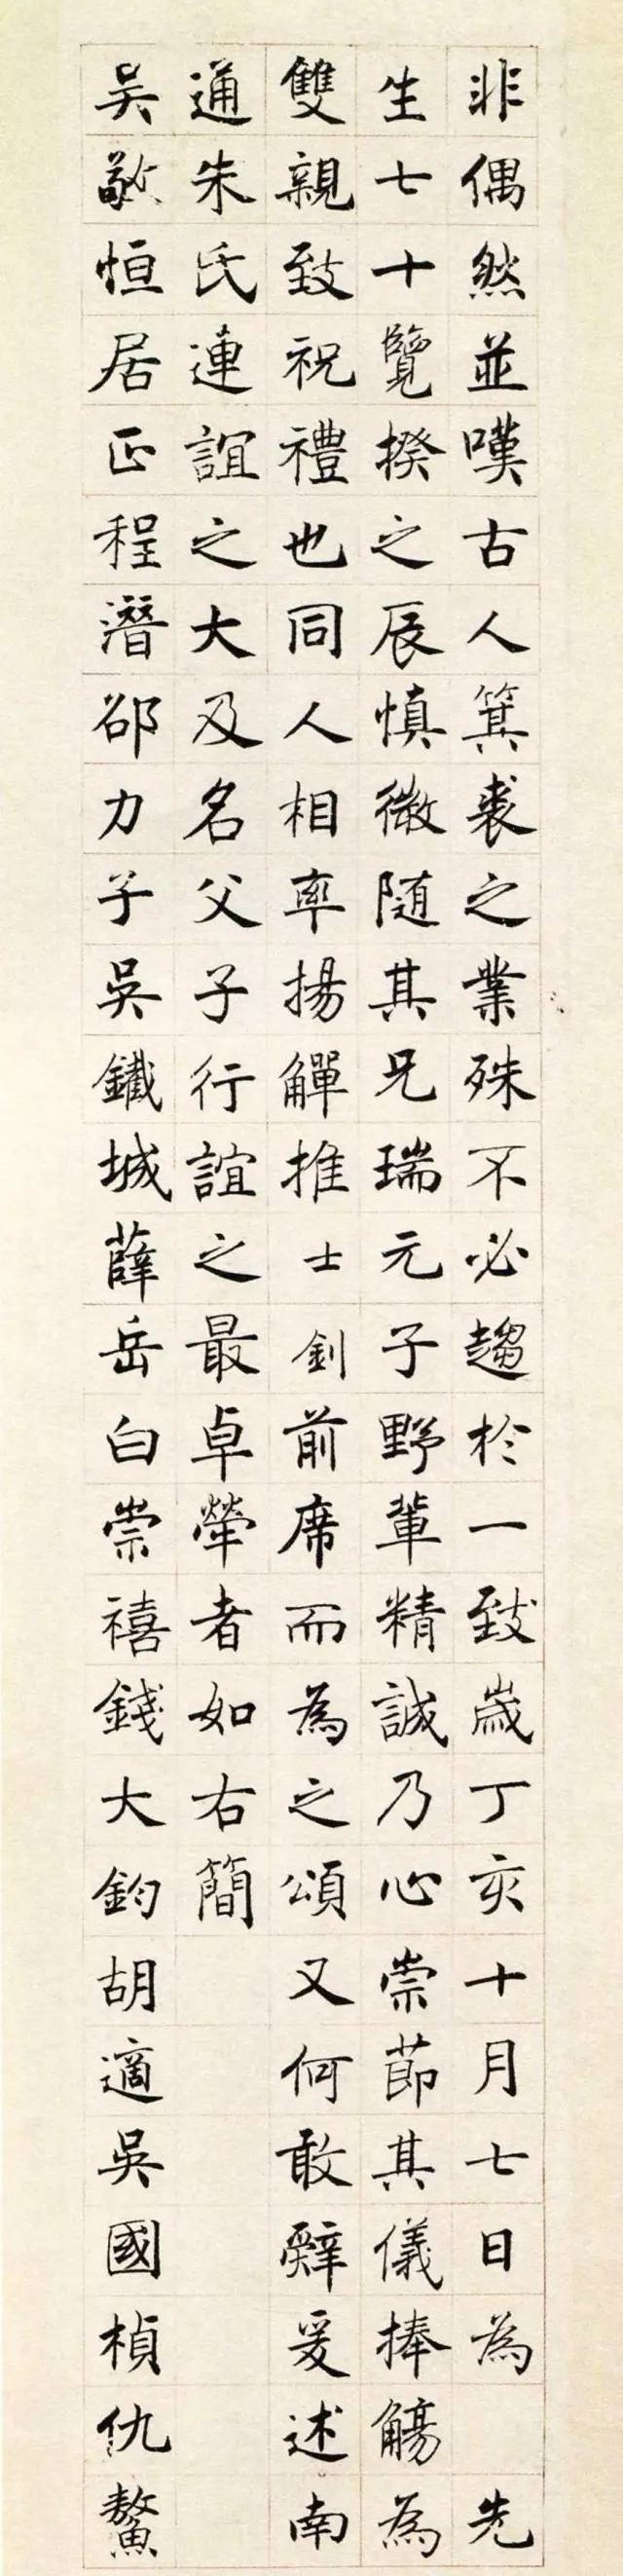 非偶然並嘆古人箕裘之業殊不必趨於一致歲丁亥十月七日為先
生七十覽揆之辰慎微随其兄瑞元子野輩精誠乃心崇節其儀捧觴為
雙親致祝禮也同人相率揚觶推士釗前席而為之頌又何敢辭爰述南
通朱氏連誼之大及名父子行誼之最卓犖者如右簡
吴敬恒居正程潛邵力子吳鐵城薛岳白崇禧錢大鈞胡適吳國楨仇鰲